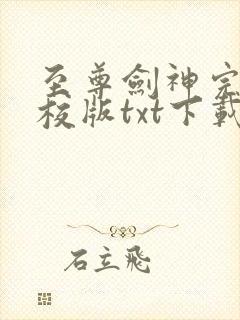 至尊劍神
校版txt下載
石立飛